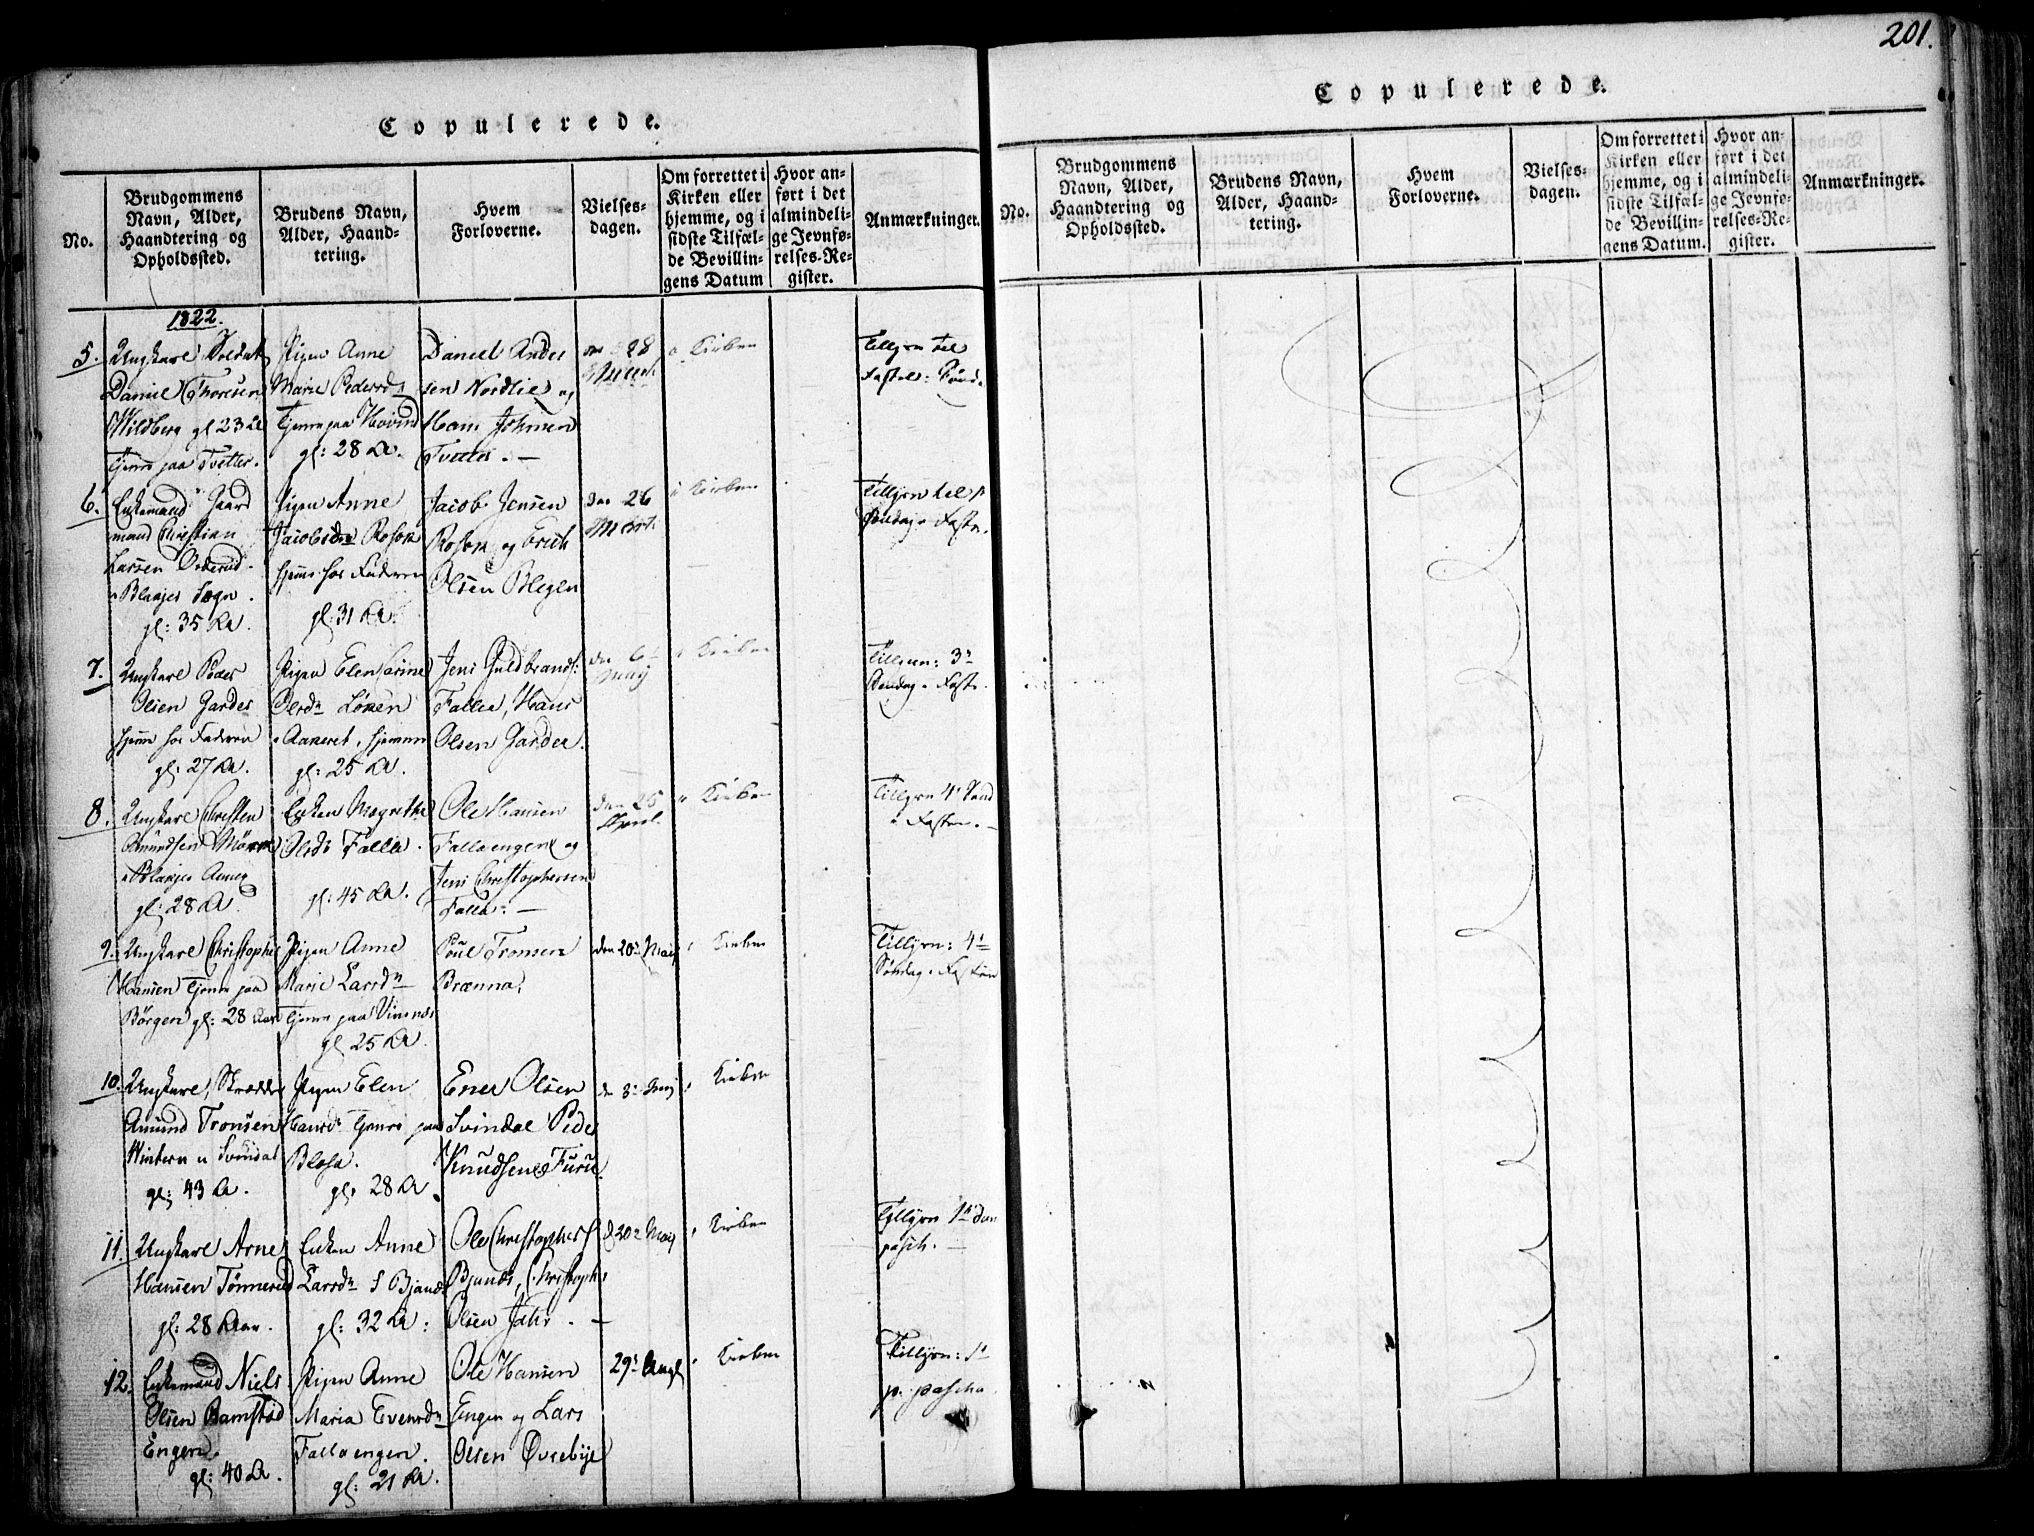 201.
Copulerede.
No.
Brudgommens
Navn, Alder,
Haandtering og
Opholdssted.
Brudens Navn,
Alder, Haand-
tering.
Hvem
Forloverne.
Vielses-
dagen.
Om forrettet i
Kirken eller
hjemme, og i
sidste Tilfæl-
de Bevillin-
gens Datum
Hvor an-
ført i det
almindeli-
ge Jevnfø-
relses-Re-
gister.
Anmærkninger.
1822.
5.
Ungkarl Soldat
Daniel Thoresen
Wildberg gl 23 Ar
Tjenr paa Tvetter.
Pigen Anne
Marie Pedersd
Tjenr paa Hovind
gl: 28 Ar.
Daniel Ander
sen Nordlie og
Hans Johnsen
Tvetter. —
den 28
i Kirken
Tillyst
Fastel: Sønd.
6.
Enkemand Gaard
mand Christian
Larsen Orderud
Blakjer Sogn.
gl: 35 Ar.
Pigen Anne
Jacobsdr Rosom
hjem: hos Faderen
gl: 31 Ar.
Jacob Jensen
Rosom og Erich
Olsen Blegen
den 26
Mart.
i Kirken
Søndag i Faste.
7.
Ungkarl Peder
Olsen Garder
hjemme hos Faderen
gl: 27 Ar.
Pigen Elen
Olsdr Løken
i Aaneret, hjemme
gl: 25 Ar.
Jens Guldbrands:
Falla, Hans
Olsen Garder.
den 6
May
i Kirken
3n
Søndag i Faste.
8.
Ungkarl Christen
Amundsen
gl: 28 Ar.
Enken Magrethe
Olsdr Falla.
gl: 45 Ar.
Ole Hansen
Fallaengen og
Jens Christophersen
Falla: —
den 25
April.
i Kirken
4 Sønd
i Fasten. —
9.
Ungkarl Christopher
Hansen Tjenr paa
Børgen gl: 28 Aar
Pigen Anne
Marie Larsdr
Tjenr paa
gl 25 Ar.
Poul Tronsen
Brænna,
den 20n May
i Kirken
Tillyst: 4n
Søndag i Fasten
10.
Ungkarl, Skrædder
Amund Tronsen
Svindal
gl: 43 Ar.
Pigen Elen
Hansdr Tjenr paa
gl: 28 Ar
Ener Olsen
Svindal Peder
Knudsen Furu.
d 3n Maj
i Kirken
11.
Ungkarl Arne
Hansen Tønnerud
gl: 28 Aar.
Enken Anne
Larsdr
gl: 32 Ar:
Ole Christophers
Christopher
Olsen Jahr. —
d 20n May
i Kirken
pasch. —
12.
Enkemand Niels
Olsen Bamstad
Engen.
gl: 40 Ar.
Pigen Anne
Maria Evensdr
Fallaengen.
gl: 21 Ar.
Ole Hansen
Engen og Lars
Olsen Øvrebye
29n Aug
i Kirken
p. pascha.
Copulerede.
No.
Brudgommens
Navn, Alder,
Haandtering og
Opholdssted.
Brudens Navn,
Alder, Haand-
tering.
Hvem
Forloverne.
Vielses-
dagen.
Om forrettet i
Kirken eller
hjemme, og i
sidste Tilfæl-
de Bevillin-
gens Datum.
Hvor an-
ført i det
almindeli-
ge Jevnfø-
relses-Re-
gister.
Anmærkninger.